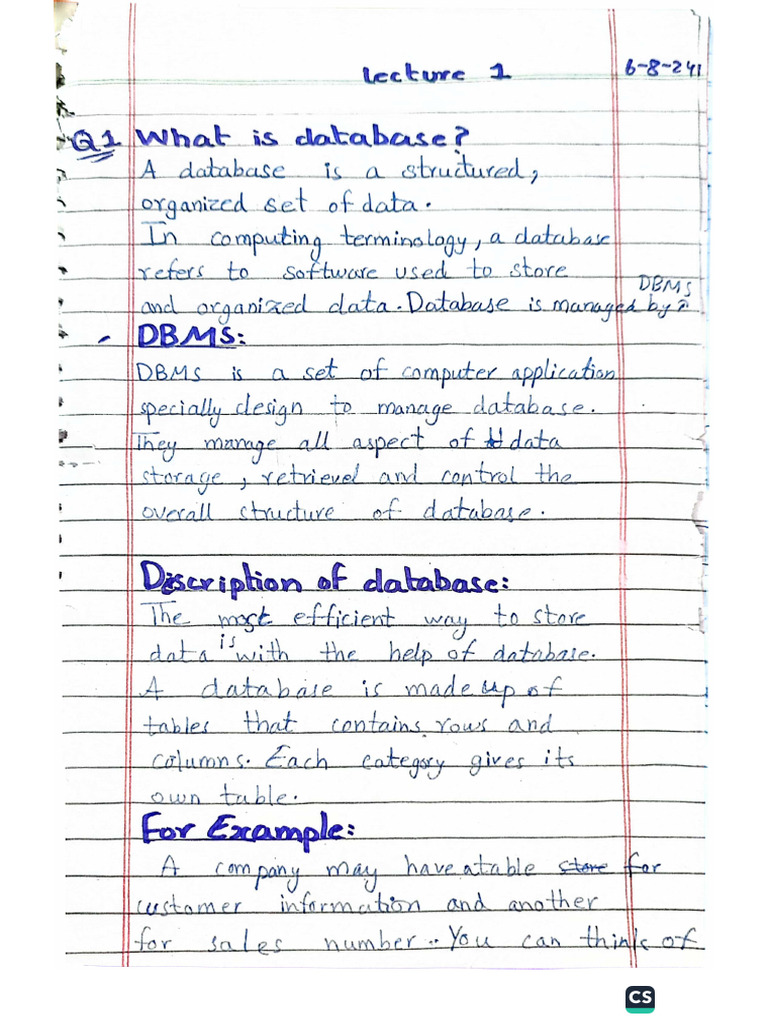 Lecture 1 6-8-24
Q1 What is database?
A database is a structured,
organized set of data.
In computing terminology, a database
refers to software used to store
and organized data. Database is managed by DBMS
DBMS:
DBMS is a set of computer application
specially design to manage database.
They manage all aspect of data
storage, retrievel and control the
overall structure of database.
Discription of database:
The most efficient way to store
data is with the help of database.
A database is made up of
tables that contains rows and
columns. Each category gives its
own table.
For Example:
A company may have a table store for
customer information and another
for sales number. You can think of
CS